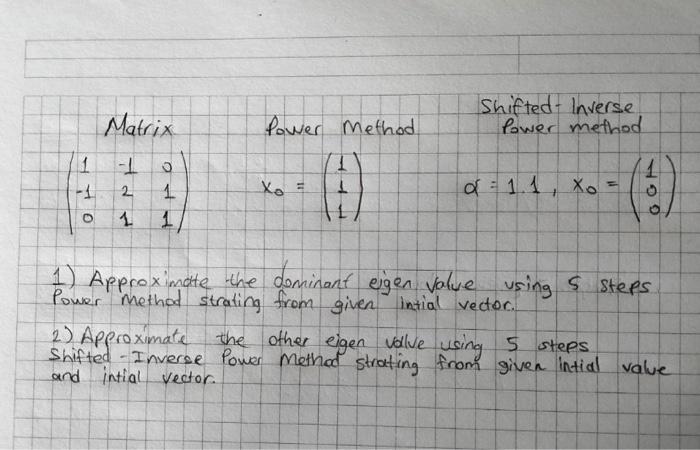 Matrix Power Method Shifted-Inverse Power method
1 -1 0
-1 2 1
0 1 1
x₀ = 1 1 1
α = 1.1, x₀ = 1 0 0
1) Approximate the dominant eigen value using 5 steps
Power Method strating from given intial vector.
2) Approximate the other eigen value using 5 steps
Shifted-Inverse Power Method strating from given intial value
and intial vector.